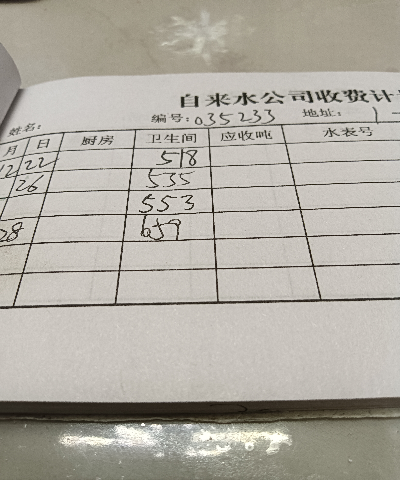 自来水公司收费计
姓名: 编号: 035233 地址: 1-
月 日 厨房 卫生间 应收吨 水表号
12 22 518
26 535
553
28 659